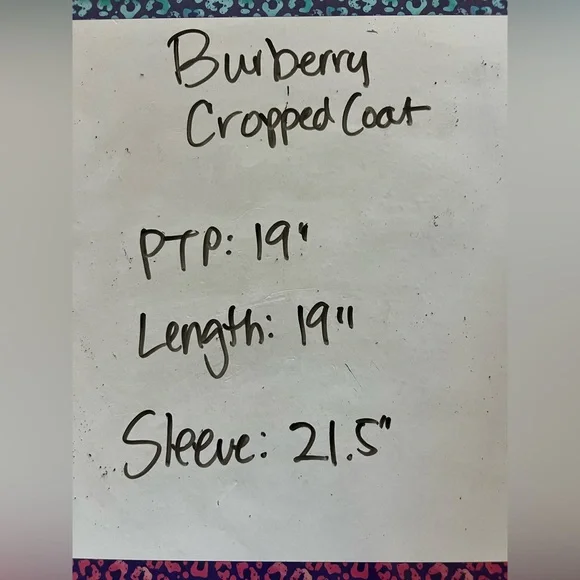 Burberry
Cropped Coat
PTP: 19"
Length: 19"
Sleeve: 21.5"